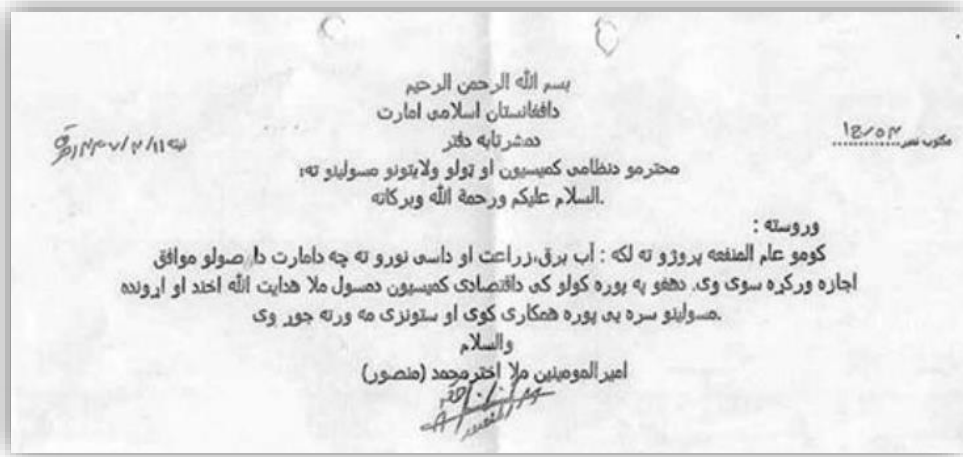 بسم الله الرحمن الرحيم
دافغانستان اسلامی امارت
دمشرتابه دفتر
مکتوب نمبر
نېټه
محترمو دنظامی کمیسیون او ټولو ولایتونو مسولینو ته:
السلام علیکم ورحمة الله وبرکاته.
وروسته :
کومو عام المنفعه پروژو ته لکه : آب برق،زراعت او داسی نورو ته چه دامارت دا صولو موافق
اجازه ورکړه سوی وی. دهغو په پوره کولو کی داقتصادی کمیسیون دمسول ملا هدایت الله اخند او اړونده
مسولینو سره یی پوره همکاری کوی او ستونزی مه ورته جوړ وی.
والسلام
امیر المومینین ملا اخترمحمد (منصور)